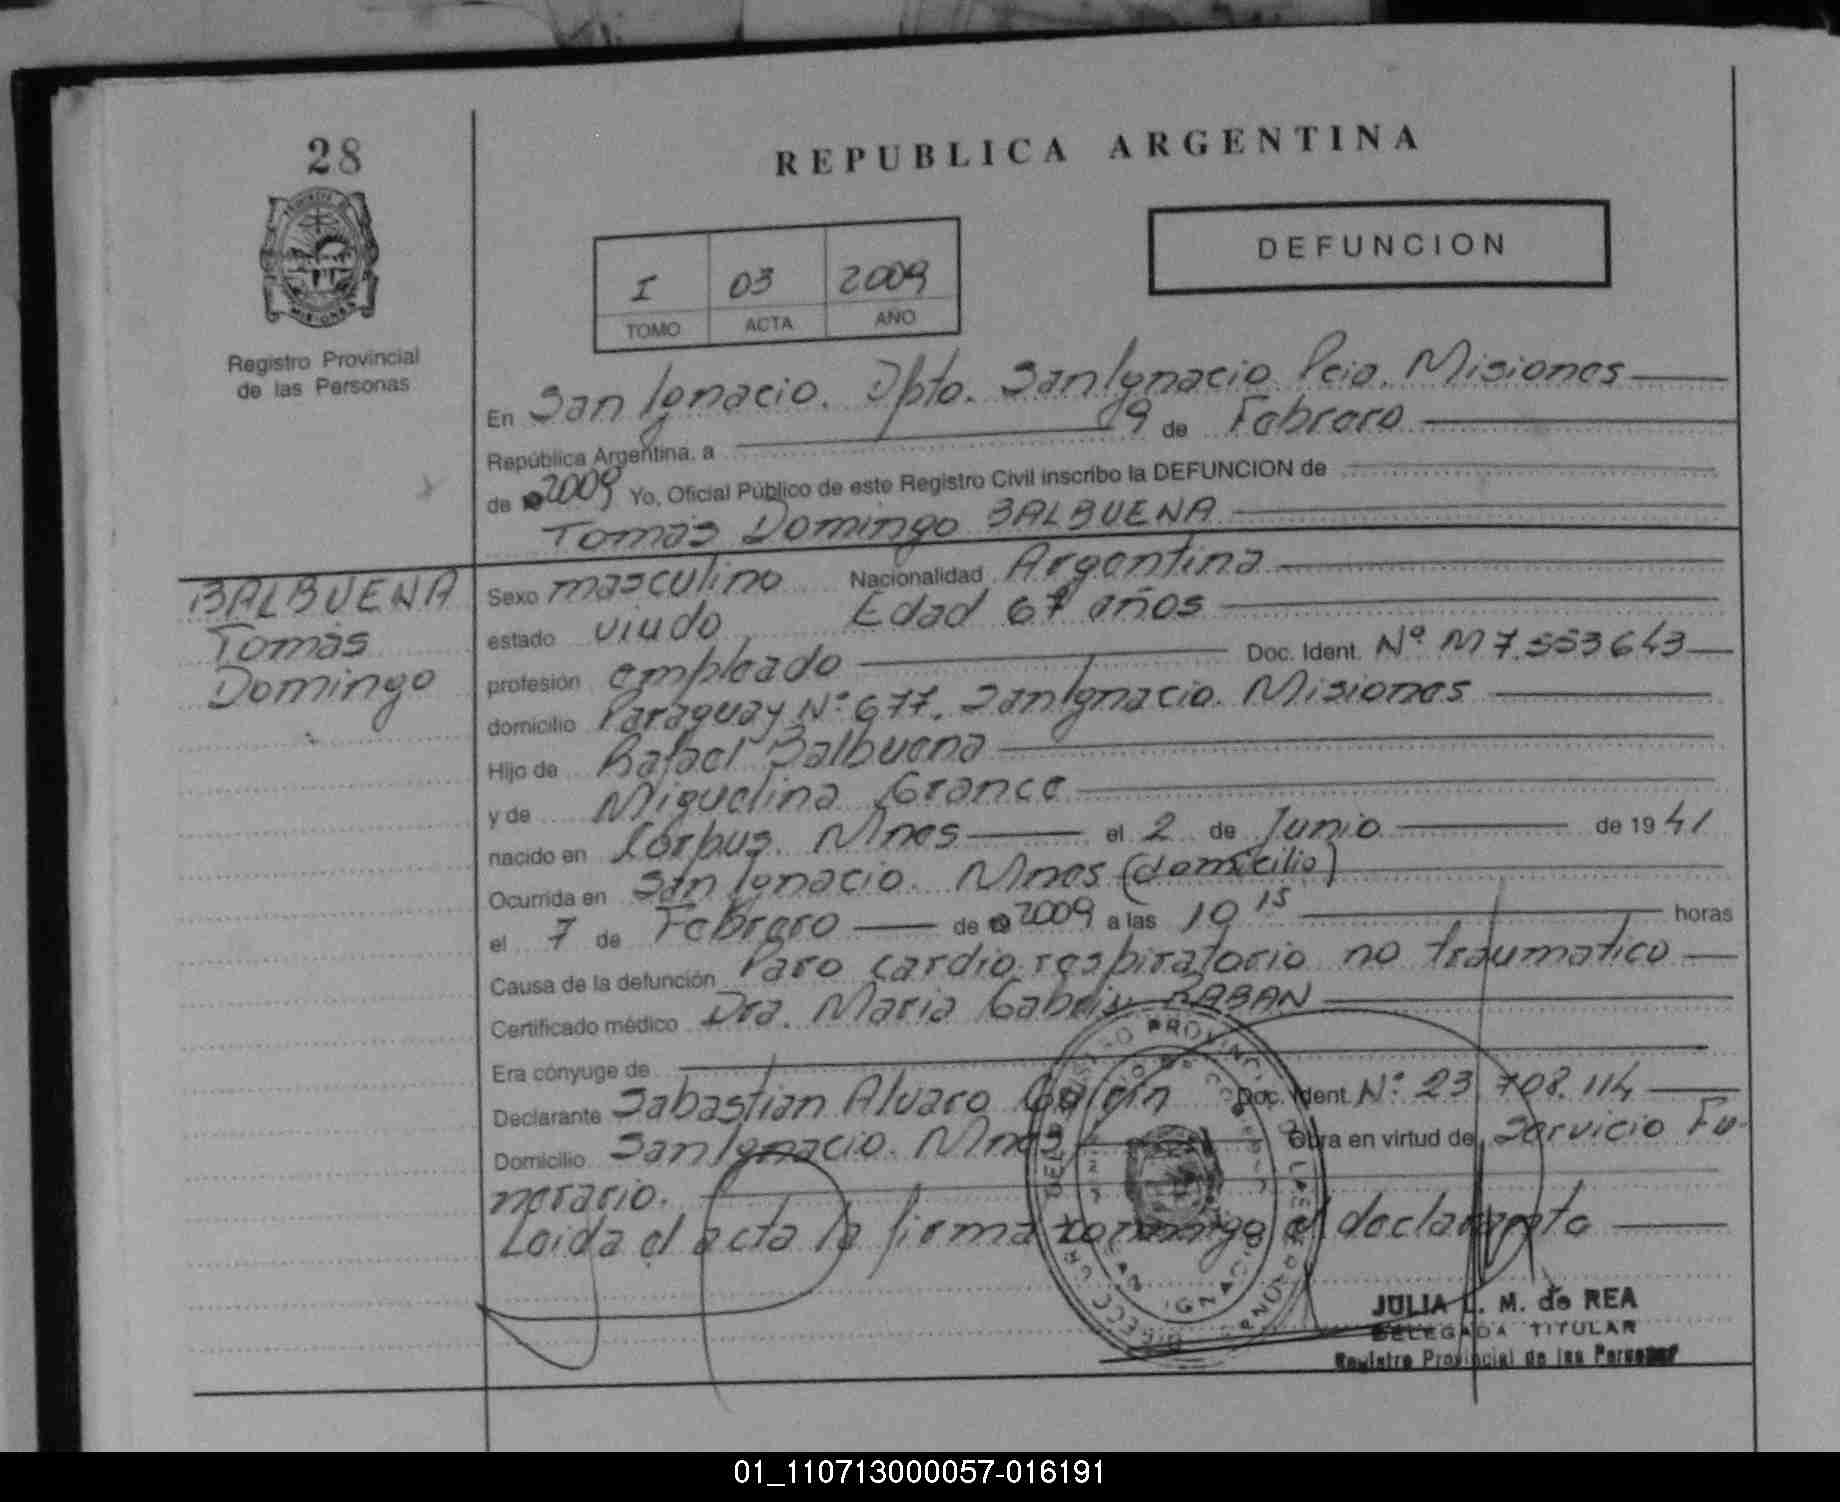 28
REPUBLICA ARGENTINA
DEFUNCION
I 03 2009
TOMO ACTA AÑO
Registro Provincial
de las Personas
En San Ignacio. Dpto. San Ignacio Pcia. Misiones
República Argentina, a 9 de Febrero
de 2009 Yo, Oficial Público de este Registro Civil inscribo la DEFUNCION de
Tomás Domingo BALBUENA
BALBUENA
Tomás
Domingo
Sexo masculino Nacionalidad Argentina
estado viudo Edad 67 años
profesión empleado Doc. Ident. Nº M 7.553643
domicilio Paraguay Nº 677. San Ignacio. Misiones
Hijo de Rafael Balbuena
y de Miguelina Grance
nacido en Corpus. Mnes el 2 de Junio de 1941
Ocurrida en San Ignacio. Mnes (domicilio)
el 7 de Febrero de 2009 a las 10 15 horas
Causa de la defunción Paro cardio respiratorio no traumatico
Certificado médico Dra. Maria RABAN
Era cónyuge de
Declarante Sebastian Alvaro Doc. Ident. Nº 23.708.114
Domicilio San Ignacio. Mnes Obra en virtud de Servicio Fu-
nerario.
Leida el acta la firma conmigo el declarante
JULIA L. M. de REA
DELEGADA TITULAR
Registro Provincial de las Personas
01_110713000057-016191